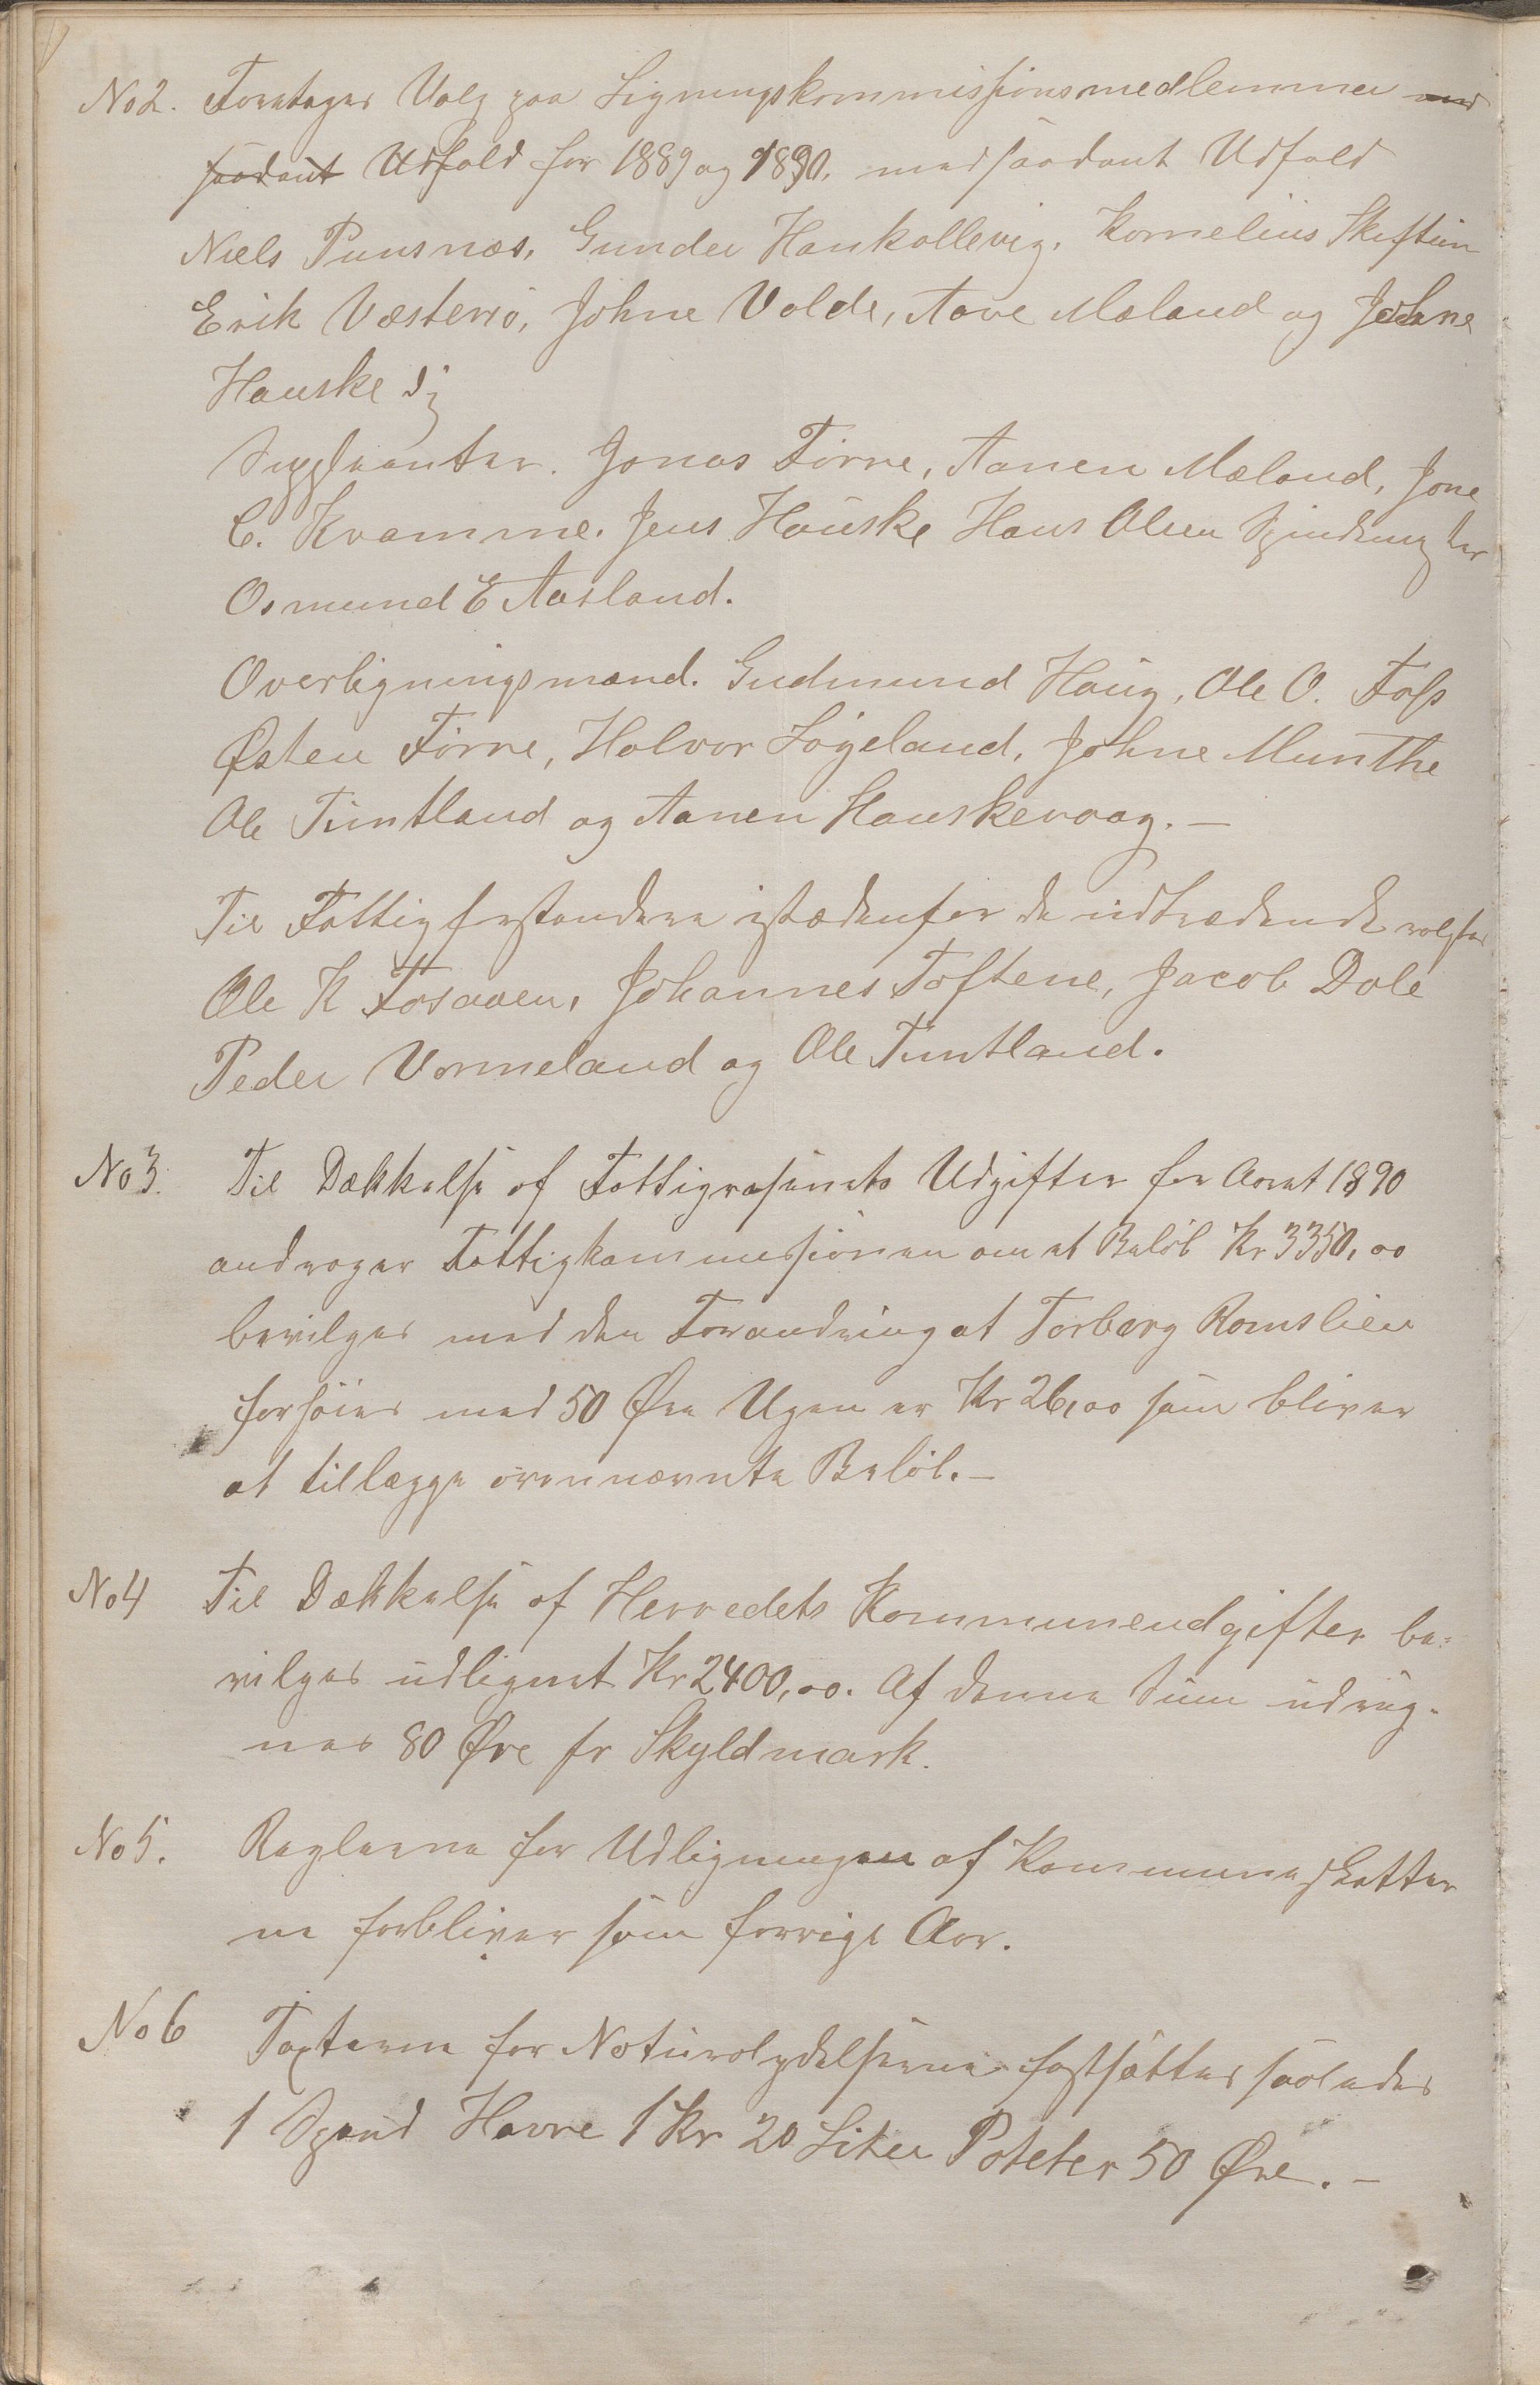 No 2. Foretages Valg paa Ligningskommissionsmedlemmer med
saadant Udfald for 1889 og 1890, med saadant Udfald
Niels Punsnæs, Gunder Hankallevig, Kornelius Skeftun
Erik Væsterø, Johne Valde, Aave Mæland og Johne
Hauske
Suppleanter. Jonas Førre, Aanen Mæland, Jone
C. Kvamme. Jens Hauske Hans Olsen
Osmund E Aasland.
Overligningsmænd. Gudmund Haug, Ole O. Foss
Østen Førre, Halvor Løgeland, Johne Munthe
Ole Tuntland og Aanen Hauskevaag. —
Til Fattigforstandere istædenfor de udtrædende valgtes
Ole K Fosaaen, Johannes Toftene, Jacob Dale
Peder Vormeland og Ole Tuntland.
No 3. Til Dækkelse af Fattigvæsenets Udgifter for Aaret 1890
andrager Fattigkommissionen om et Beløb Kr 3350,00
bevilges med den Forandring at Torberg Romslien
forhøies med 50 Øre Ugen er Kr 26,00 som bliver
at tillægge ovennævnte Beløb. —
No 4 Til Dækkelse af Herredets Kommuneudgifter be-
vilges udlignet Kr 2400,00. Af denne Sum udreg-
nes 80 Øre pr Skyldmark.
No 5. Reglerne for Udligningen af Kommuneskatter
ne forbliver som forrige Aar.
No 6 Taxterne for Naturalydelserne fastsættes saaledes
1 Spand Havre 1 Kr 20 Liter Poteter 50 Øre. —